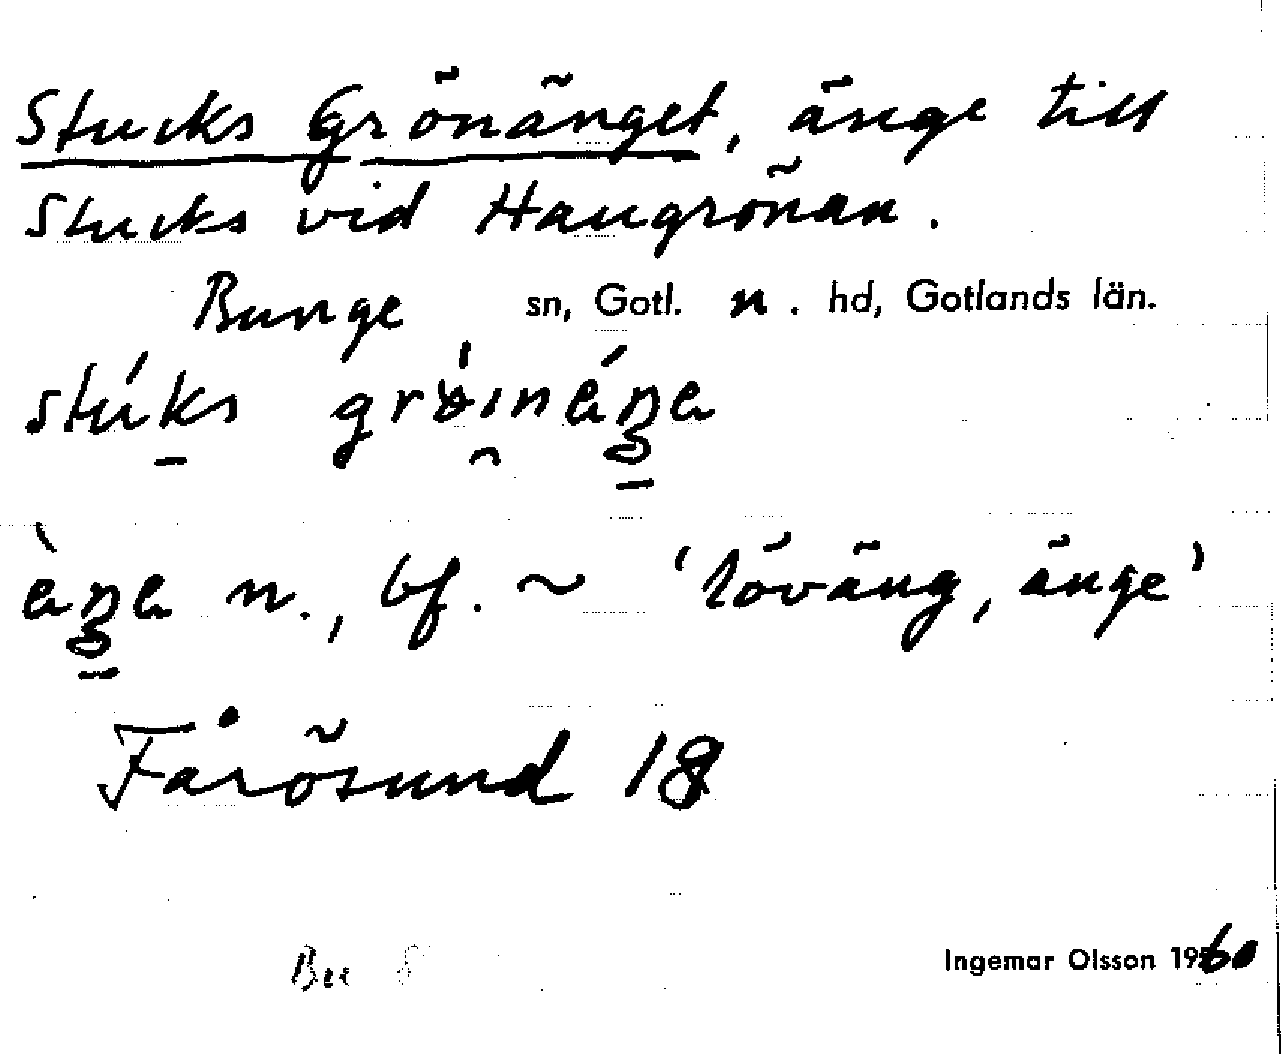 Stucks Grönänget, änge till
Stucks vid Haugrönan.
Bunge sn, Gotl. n. hd, Gotlands län.
n., bf. ~ 'löväng, änge'
Fårösund 18
Bu
Ingemar Olsson 1960